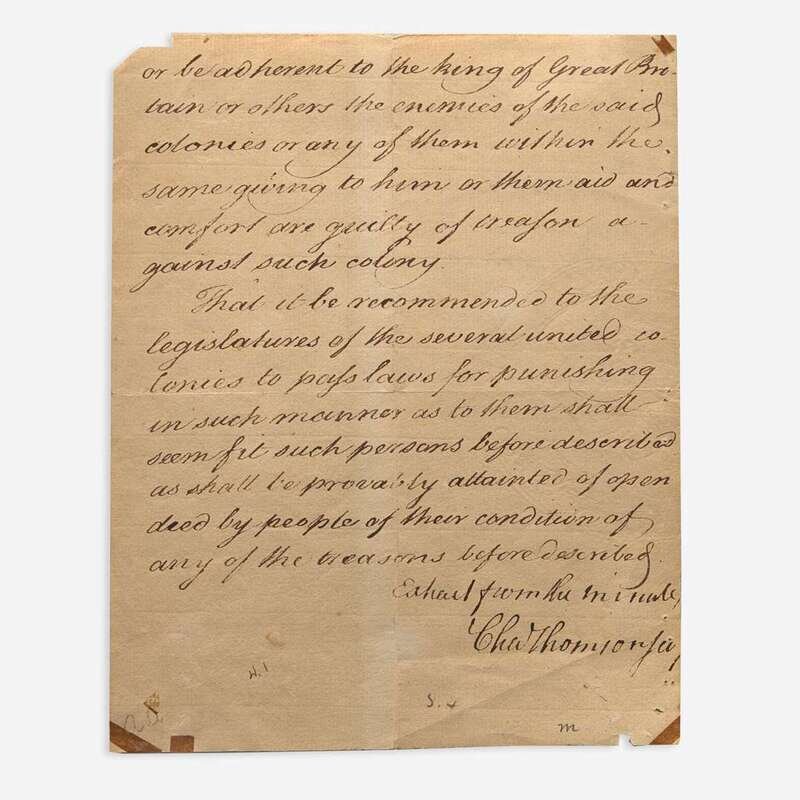 or be adherent to the king of Great Bri-
tain or others the enemies of the said
colonies or any of them within the
same giving to him or them aid and
comfort are guilty of treason a-
gainst such colony.
That it be recommended to the
legislatures of the several united co-
lonies to pass laws for punishing
in such manner as to them shall
seem fit such persons before described
as shall be provably attainted of open
deed by people of their condition of
any of the treasons before described.
Extract from the minutes
Chas Thomson secy
m